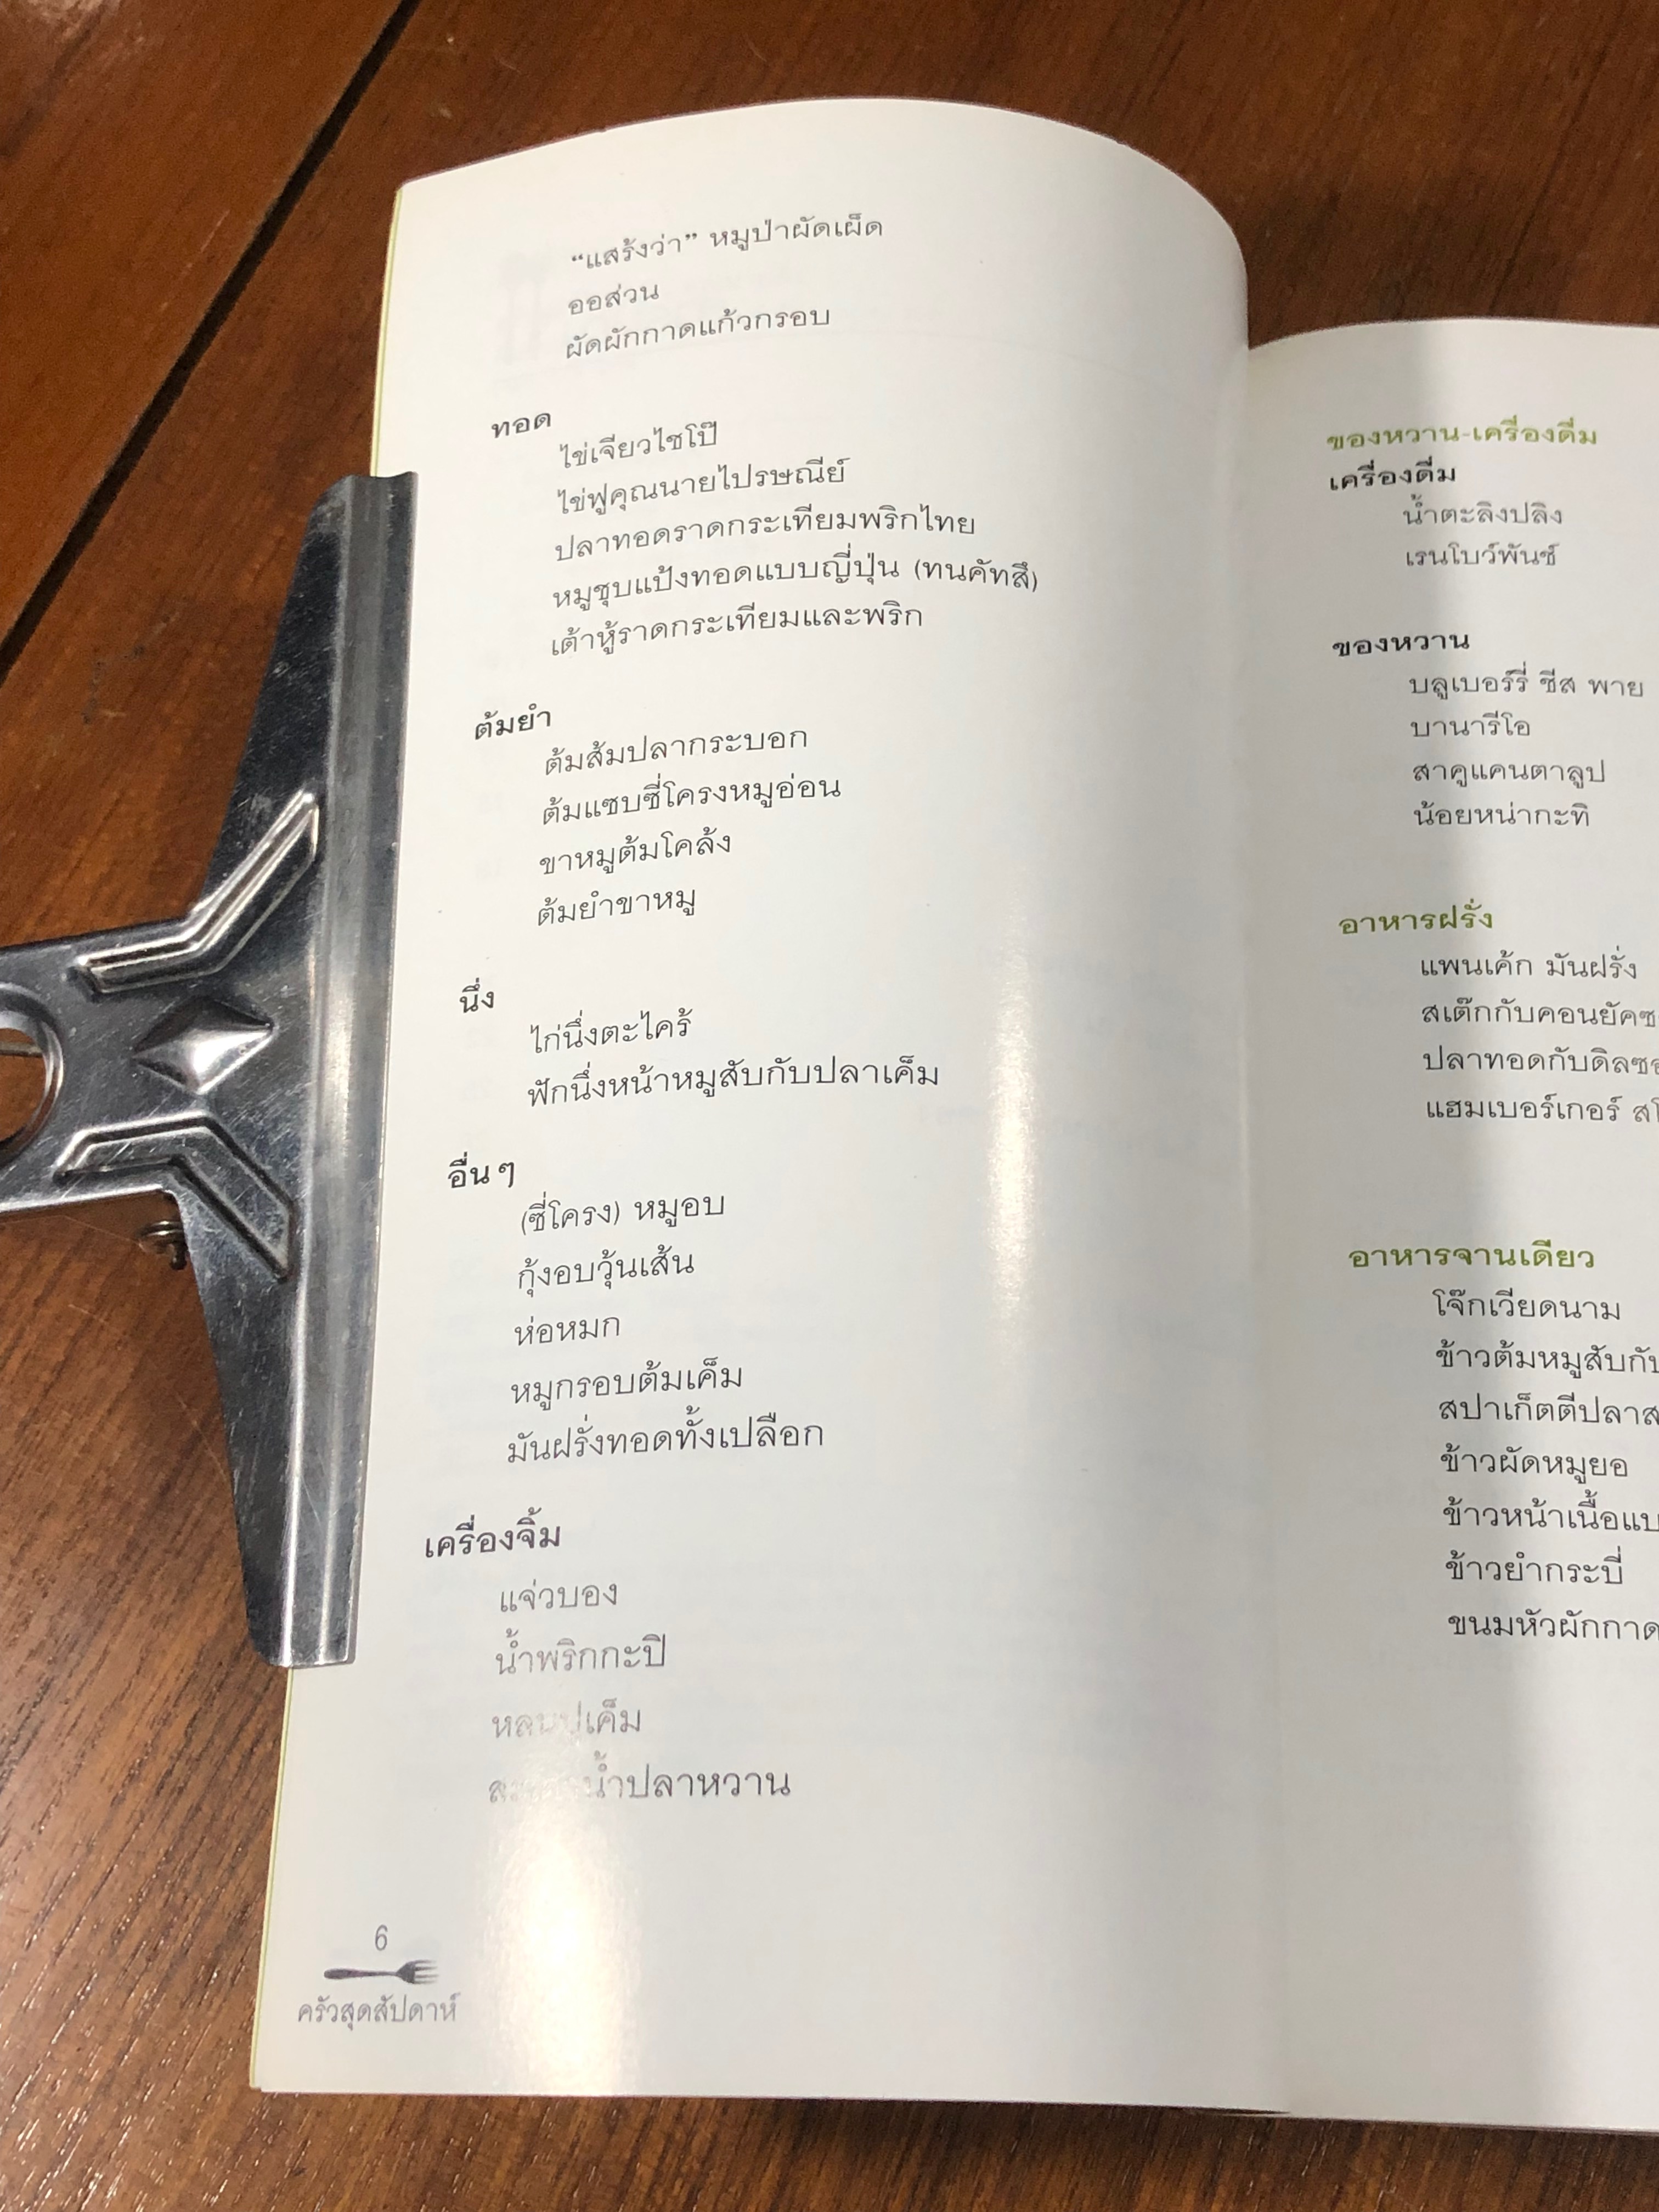 “แสร้งว่า” หมูป่าผัดเผ็ด
ออส่วน
ผัดผักกาดแก้วกรอบ
ทอด
ไข่เจียวไชโป๊
ไข่ฟูคุณนายไปรษณีย์
ปลาทอดราดกระเทียมพริกไทย
หมูชุบแป้งทอดแบบญี่ปุ่น (ทนคัทสึ)
เต้าหู้ราดกระเทียมและพริก
ต้มยำ
ต้มส้มปลากระบอก
ต้มแซบซี่โครงหมูอ่อน
ขาหมูต้มโคล้ง
ต้มยำขาหมู
นึ่ง
ไก่นึ่งตะไคร้
ฟักนึ่งหน้าหมูสับกับปลาเค็ม
อื่น ๆ
(ซี่โครง) หมูอบ
กุ้งอบวุ้นเส้น
ห่อหมก
หมูกรอบต้มเค็ม
มันฝรั่งทอดทั้งเปลือก
เครื่องจิ้ม
แจ่วบอง
น้ำพริกกะปิ
หลนปูเค็ม
น้ำปลาหวาน
6
ครัวสุดสัปดาห์
ของหวาน-เครื่องดื่ม
เครื่องดื่ม
น้ำตะลิงปลิง
เรนโบว์พันช์
ของหวาน
บลูเบอร์รี่ ชีส พาย
บานารีโอ
สาคูแคนตาลูป
น้อยหน่ากะทิ
อาหารฝรั่ง
แพนเค้ก มันฝรั่ง
สเต๊กกับคอนยัคซ
ปลาทอดกับดิลซอ
แฮมเบอร์เกอร์ ส
อาหารจานเดียว
โจ๊กเวียดนาม
ข้าวต้มหมูสับกับ
สปาเก็ตตีปลาส
ข้าวผัดหมูยอ
ข้าวหน้าเนื้อแบ
ข้าวยำกระบี่
ขนมหัวผักกาด